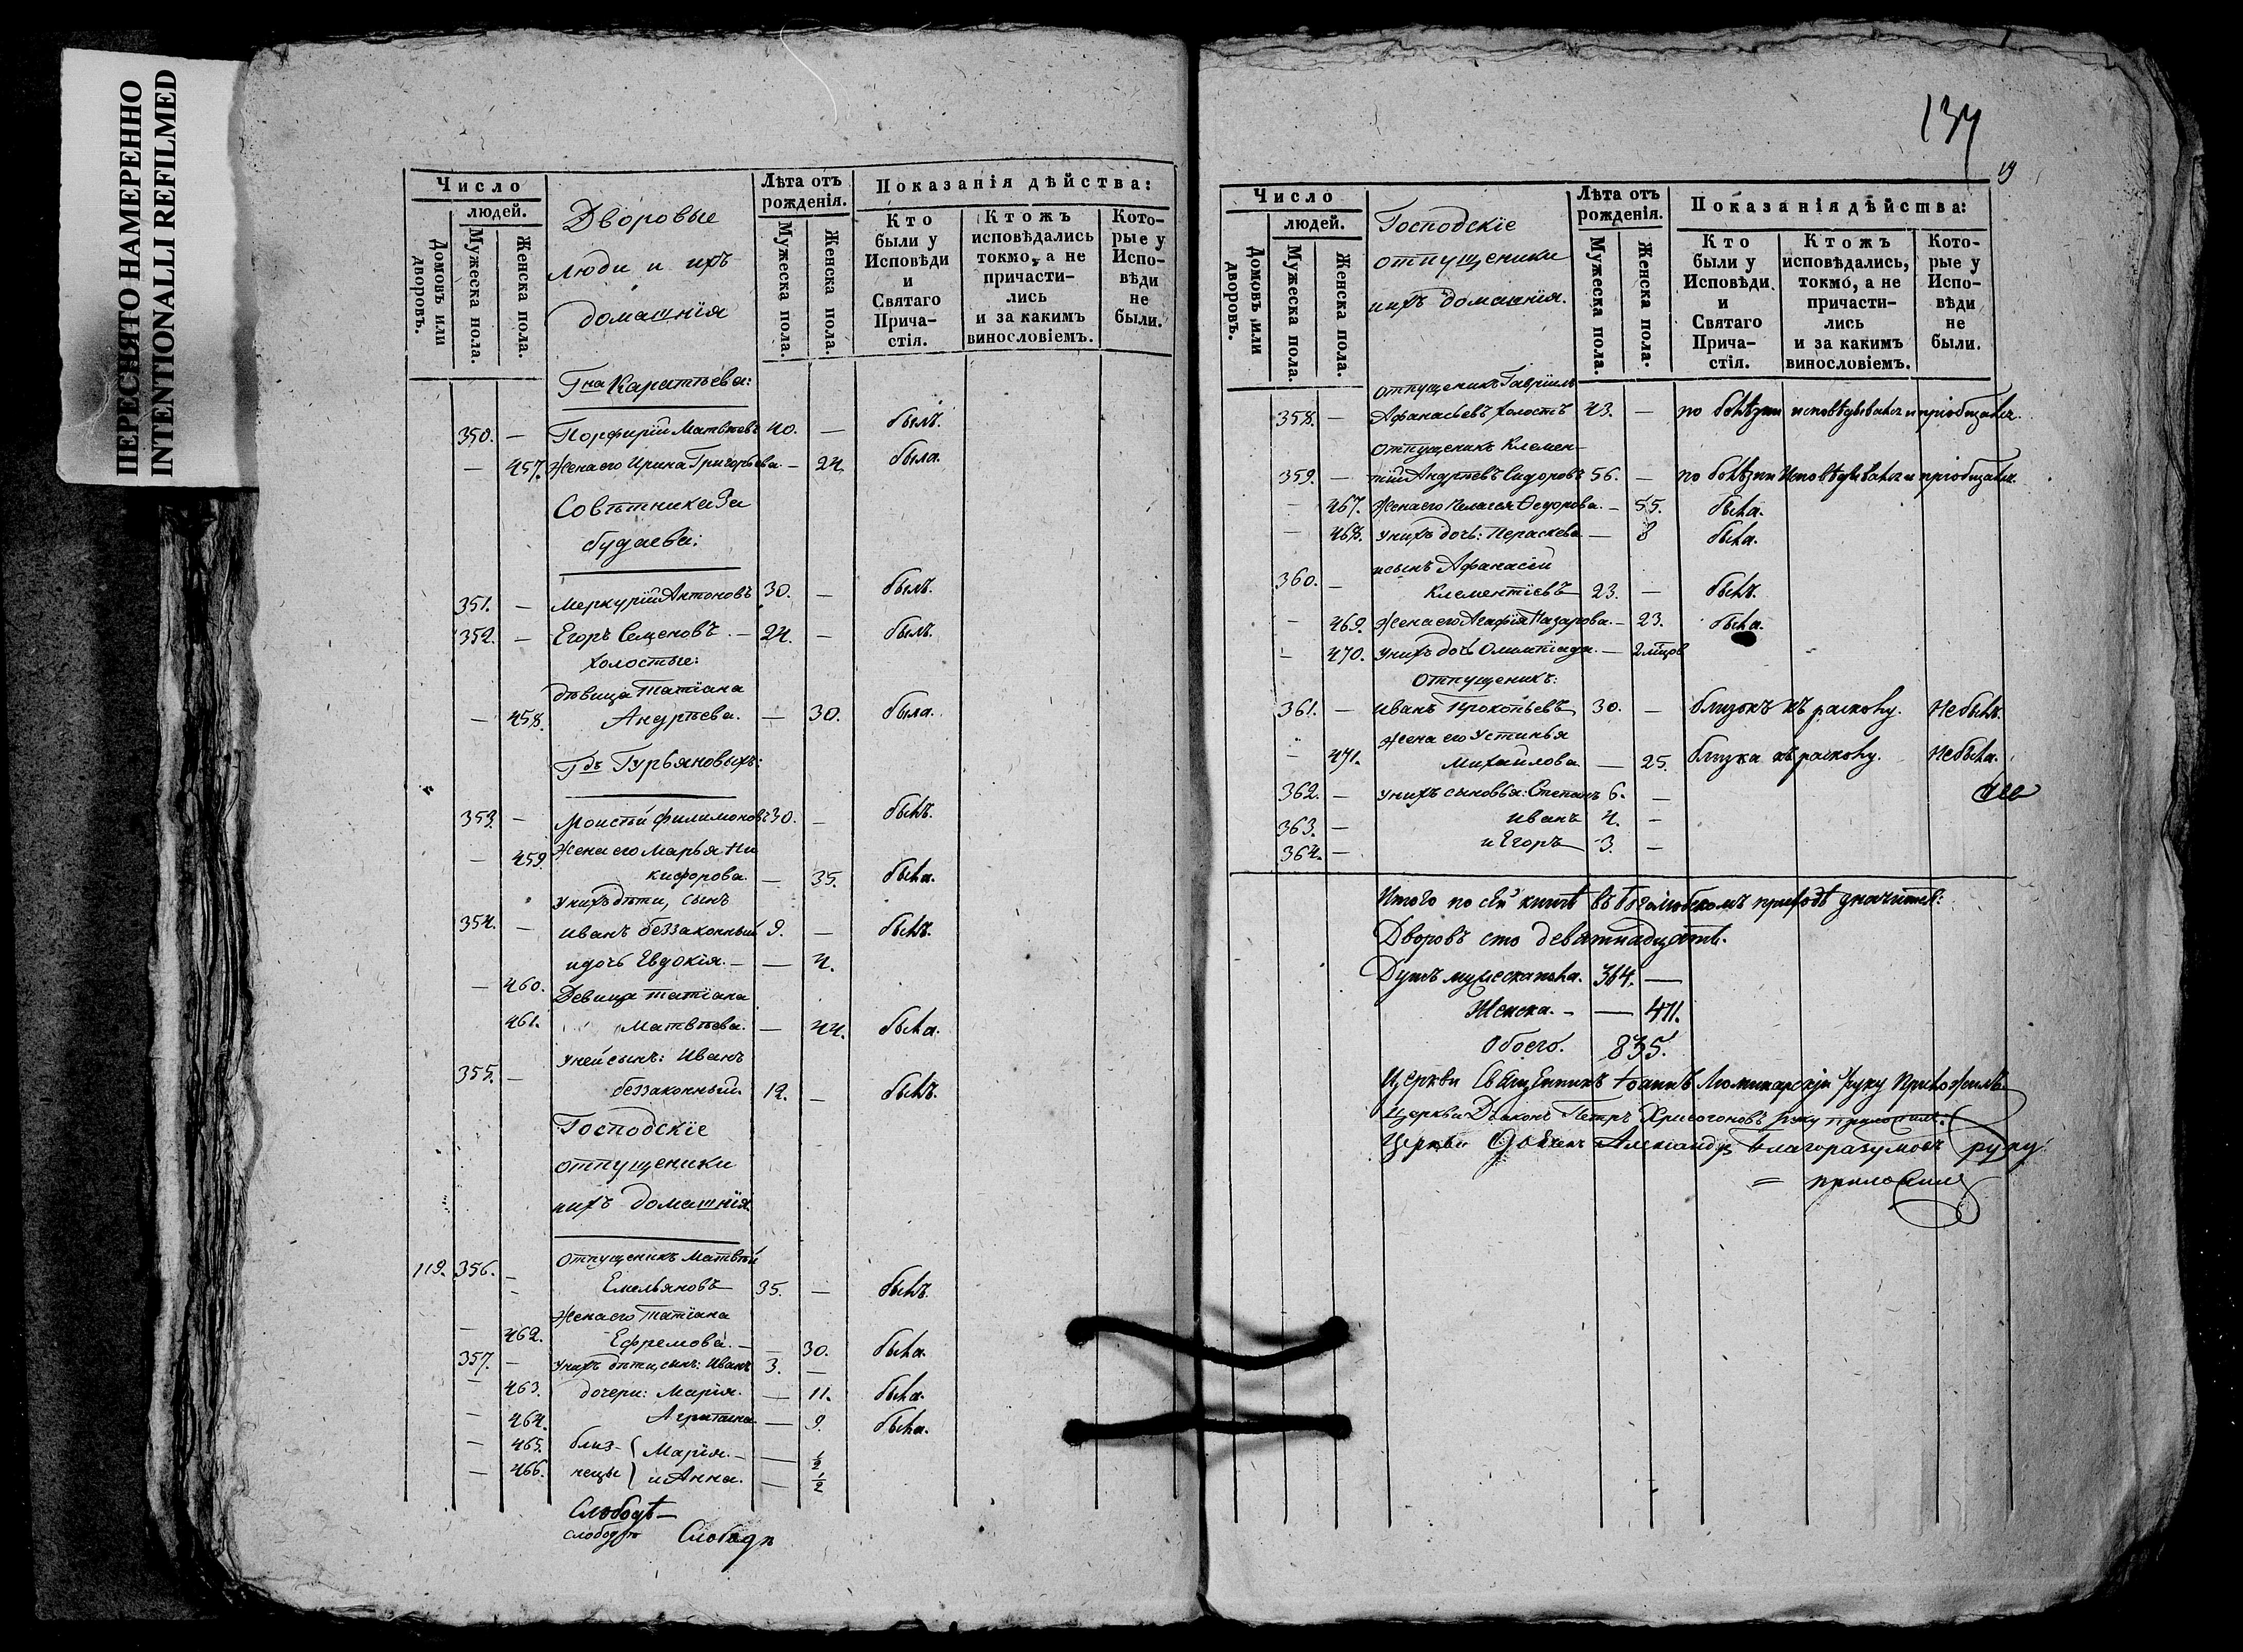 ПЕРЕСНЯТО НАМЕРЕННО
INTENTIONALLI REFILMED
Число
людей.
Домовъ или дворовъ.
Мужеска пола.
Женска пола.
Дворовые
люди и ихъ
домашнія
Лѣта отъ рожденія.
Мужеска пола.
Женска пола.
Показанія дѣйства:
Кто были у Исповѣди и Святаго Причастія.
Ктожъ исповѣдались токмо, а не причастились и за какимъ винословіемъ.
Которые у Исповѣди не были.
Гна Каратѣева:
350. — Порфирій Матвѣевъ 40. — былъ.
— 457. Жена его Ирина Григорьева — 24 была.
Совѣтника За
будаева:
351. — Меркурій Антоновъ 30. — былъ.
352. — Егоръ Семеновъ. — 24. — былъ.
холостые:
дѣвица Татіана
— 458. Андрѣева. — 30. была.
Гдъ Гурьяновыхъ:
353. — Моисѣй Филимоновъ 30. — былъ.
— 459. Жена его Марья Ни
кифорова. — 35. была.
У нихъ дѣти, сынъ
354. — Иванъ беззаконный 9. — былъ.
и дочь Евдокія. — — 4.
— 460. Девица Татіана
461. Матвѣева. — 44. была.
У ней сынъ: Иванъ
355. — беззаконный. 12. — былъ.
Господскіе
отпущеники
и ихъ домашнія.
119. 356. — Отпущеникъ Матвѣй
Емельяновъ 35. — былъ.
Жена его Татіана
— 462. Ефремова. — — 30. была.
357. — У нихъ дѣти, сынъ: Иванъ 3. —
— 463. дочери: Марія. — 11. была.
— 464. Агрипина — 9. была.
— 465. близ- Марія. — — ½
— 466. нецы и Анна. — ½
Слободѣ —
слободѣ Слободѣ
134
19
Число
людей.
Домовъ или дворовъ.
Мужеска пола.
Женска пола.
Господскіе
отпущеники
и ихъ домашнія.
Лѣта отъ рожденія.
Мужеска пола.
Женска пола.
Показанія дѣйства:
Кто были у Исповѣди и Святаго Причастія.
Ктожъ исповѣдались, токмо, а не причастились и за какимъ винословіемъ.
Которые у Исповѣди не были.
Отпущеникъ Гавріилъ
358. — Афанасьевъ холостъ 43. — по болѣзни исповѣдывался и пріобщался.
Отпущеникъ Клемен-
359. — тій Андрѣевъ Сидоровъ 56. — по болѣзни Исповѣдывался и пріобщался.
— 467. Жена его Пелагея Ѳедорова. — 55. была.
— 468. У нихъ дочь: Пераскева — 8 была.
и сынъ Афанасій
360. — Клементіевъ 23. — былъ.
— 469. Жена его Агафія Назарова. — 23. была.
— 470. У нихъ дочь Олимпіада. — 2 мѣцов
Отпущеникъ:
361. — Иванъ Прокопьевъ 30. — близокъ къ расколу. Не былъ.
Жена его Устинья
— 471. Михайлова — 25. близка къ расколу. Не была.
362. — У нихъ сыновья: Степанъ 6. —
363. — Иванъ 4. —
364. — и Егоръ 3. —
Итого по сей книгѣ въ боголюбскомъ приходѣ значится:
Дворовъ сто девятнадцать.
Душъ мужеска пола. 364. —
Женска. — — 471.
Обоего. 835.
Церкви Священникъ Іоаннъ Люминарскій руку приложилъ
Церкви Діаконъ Петръ Хрисогоновъ руку приложилъ.
Церкви Александръ Благоразумовъ руку
= приложилъ